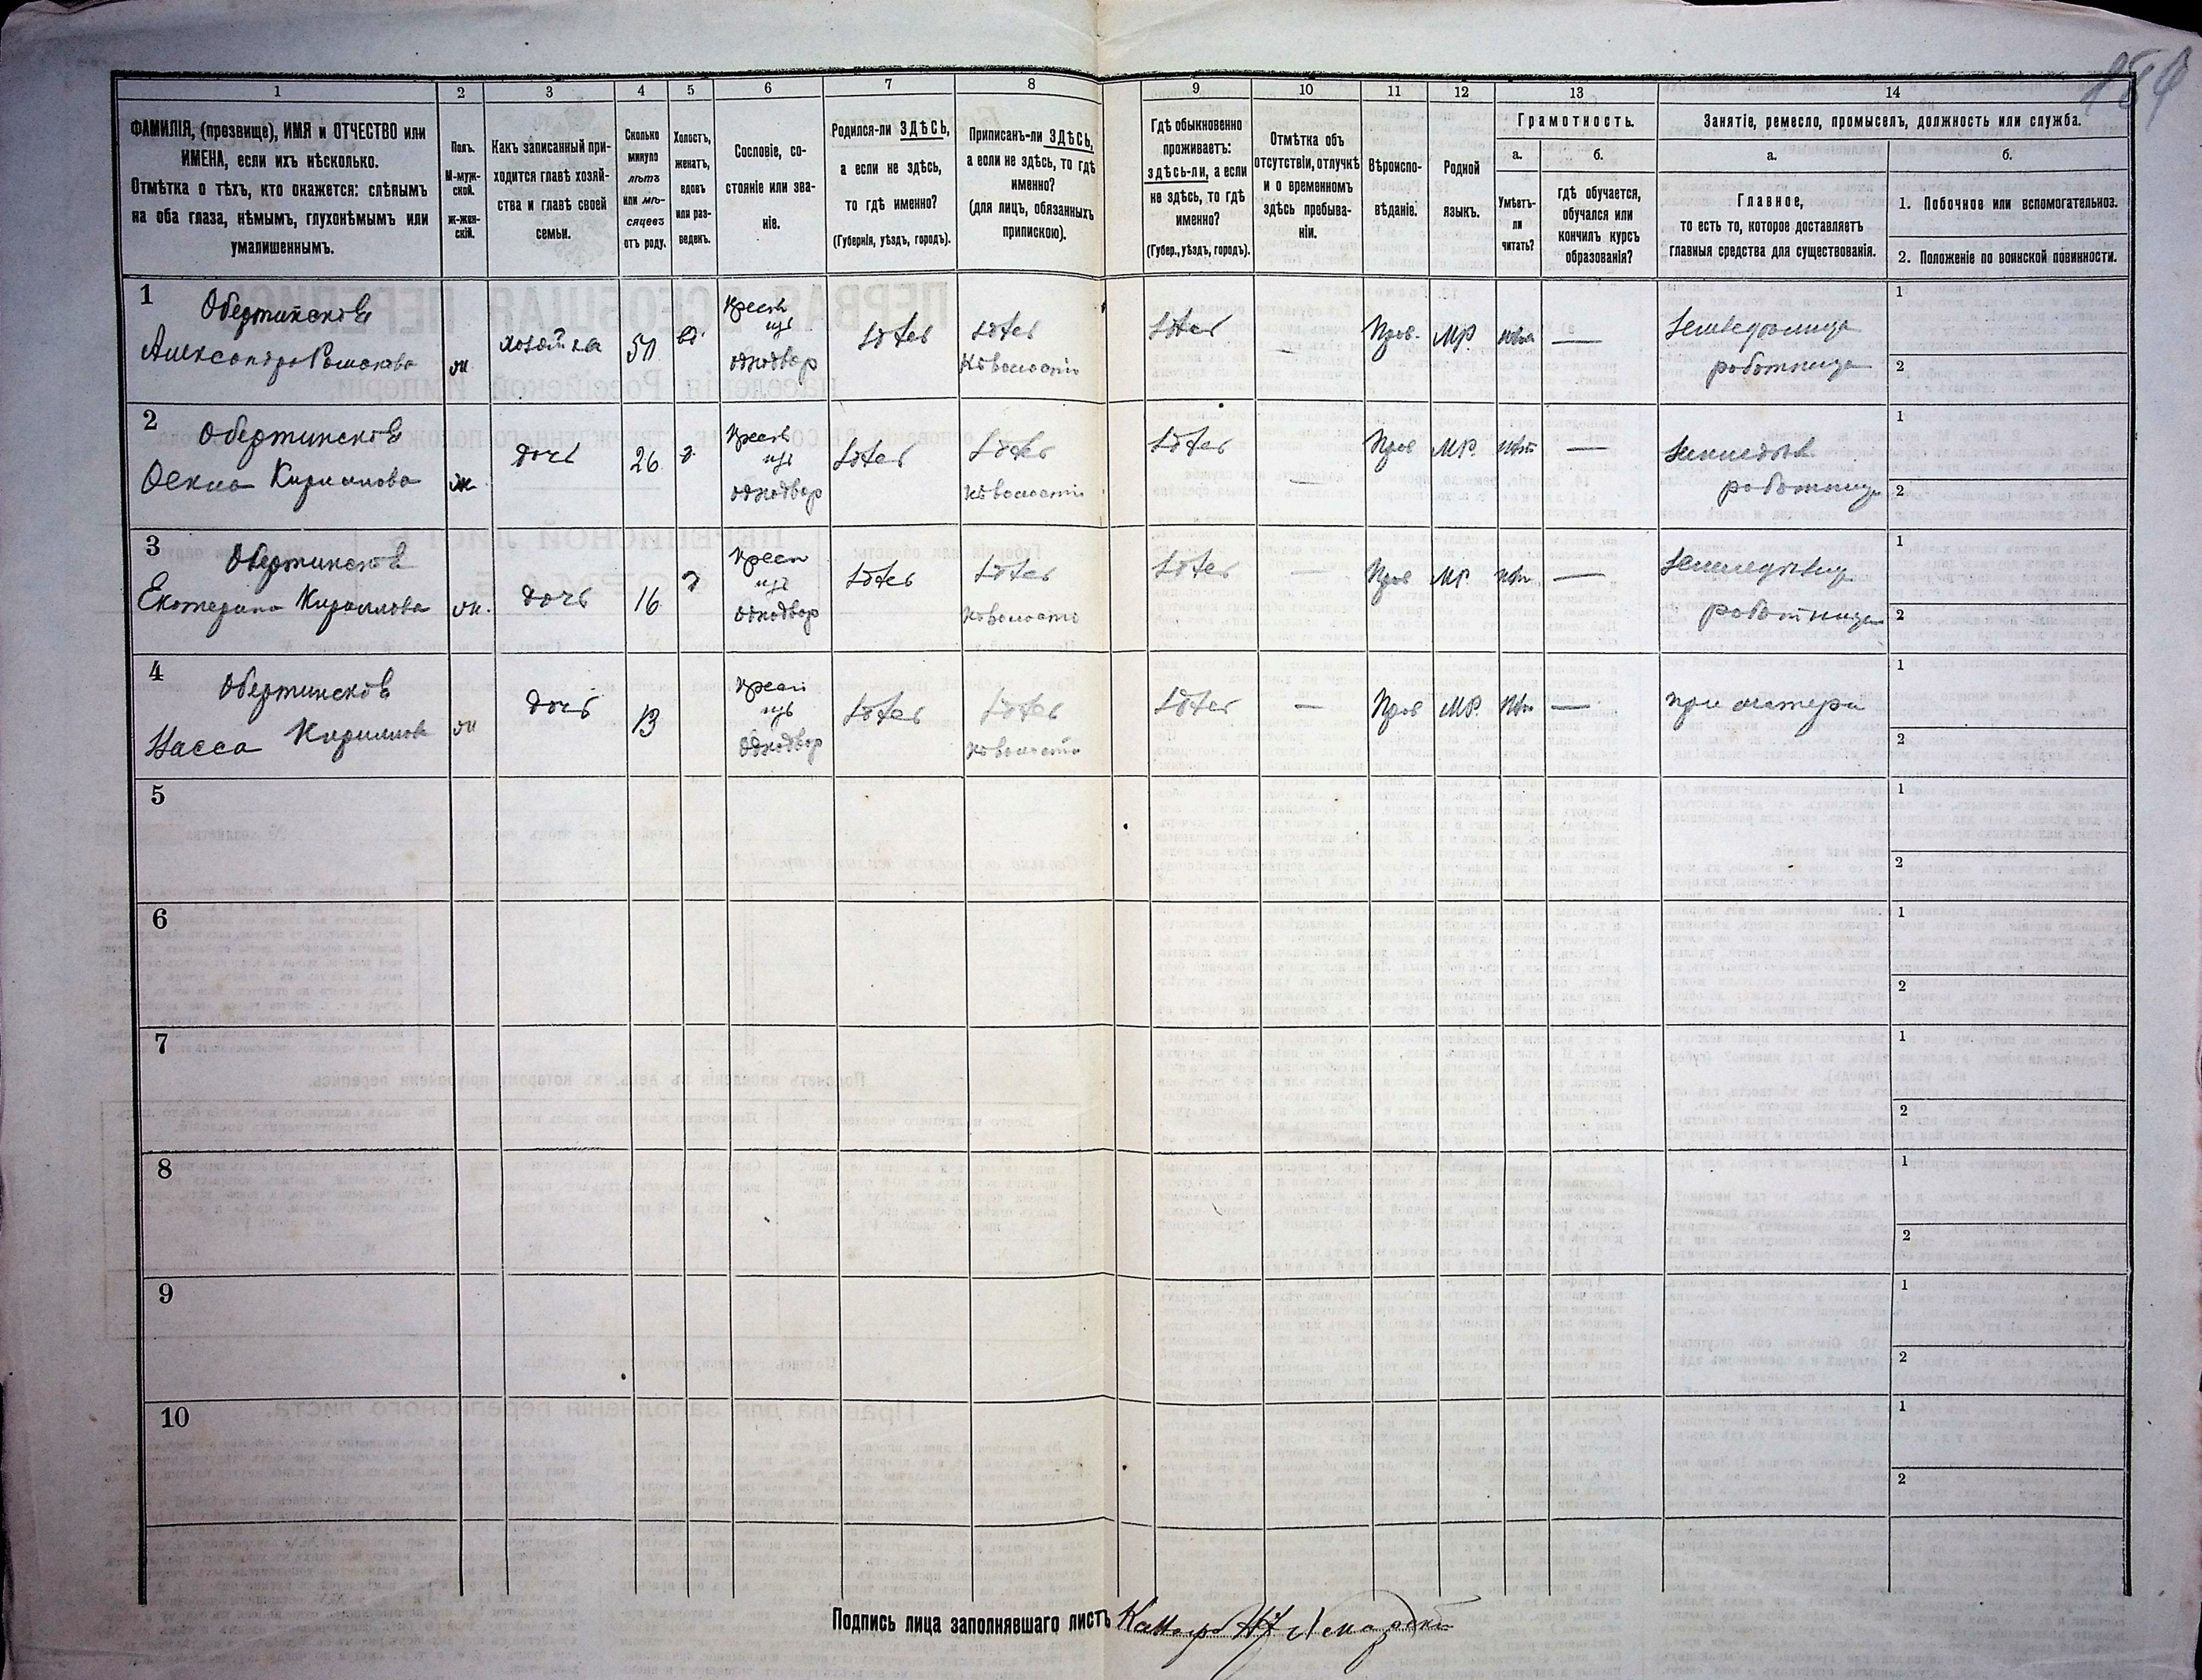 1 2 3 4 5 6 7 8 9 10 11 12 13 14
ФАМИЛІЯ, (прозвище), ИМЯ и ОТЧЕСТВО или
ИМЕНА, если ихъ нѣсколько.
Отмѣтка о тѣхъ, кто окажется: слѣпымъ
на оба глаза, нѣмымъ, глухонѣмымъ или
умалишеннымъ.
Полъ.
М-муж-
ской.
Ж-жен-
скій.
Какъ записанный при-
ходится главѣ хозяй-
ства и главѣ своей
семьи.
Сколько
минуло
лѣтъ
или мѣ-
сяцевъ
отъ роду.
Холостъ,
женатъ,
вдовъ
или раз-
веденъ.
Сословіе, со-
стояніе или зва-
ніе.
Родился-ли ЗДѢСЬ,
а если не здѣсь,
то гдѣ именно?
(Губернія, уѣздъ, городъ).
Приписанъ-ли ЗДѢСЬ,
а если не здѣсь, то гдѣ
именно?
(для лицъ, обязанныхъ
припискою).
Гдѣ обыкновенно
проживаетъ:
здѣсь-ли, а если
не здѣсь, то гдѣ
именно?
(Губер., уѣздъ, городъ).
Отмѣтка объ
отсутствіи, отлучкѣ
и о временномъ
здѣсь пребыва-
ніи.
Вѣроиспо-
вѣданіе.
Родной
языкъ.
Грамотность.
а.
Умѣетъ-
ли
читать?
б.
Гдѣ обучается,
обучался или
кончилъ курсъ
образованія?
Занятіе, ремесло, промыселъ, должность или служба.
а.
Главное,
то есть то, которое доставляетъ
главныя средства для существованія.
б.
1. Побочное или вспомогательное.
2. Положеніе по воинской повинности.
1
Обертинсков
Александра Романова
ж
хозяйка
50
в.
крест
изъ
однодвор
здѣсь
здѣсь
здѣсь
—
Прав.
МР.
нѣт
—
земледѣлица
работница
1
2
2
Обертинсков
Кирилова
ж
дочь
26
д.
крест
изъ
однодвор
здѣсь
здѣсь
здѣсь
—
Прав
МР.
нѣт
—
работница
1
2
3
Обертинсков
Екатерина Кирилова
ж.
дочь
16
д
крест
изъ
однодвор
здѣсь
здѣсь
здѣсь
—
Прав
МР.
нѣт
—
работница
1
2
4
Обертинсков
Кирилова
ж
дочь
13
крест
изъ
однодвор
здѣсь
здѣсь
здѣсь
—
Прав
МР.
нѣт
—
при матери
1
2
5
1
2
6
1
2
7
1
2
8
1
2
9
1
2
10
1
2
Подпись лица заполнявшаго листъ